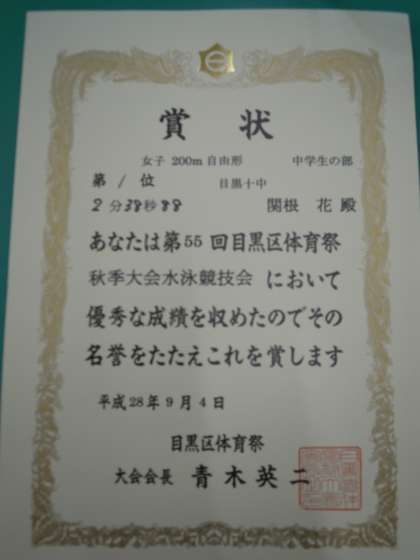 賞状
女子 200m 自由形 中学生の部
第 1 位 目黒十中
2分38秒88 関根 花 殿
あなたは第55回目黒区体育祭
秋季大会水泳競技会 において
優秀な成績を収めたのでその
名誉をたたえこれを賞します
平成28年9月4日
目黒区体育祭
大会会長 青木英二